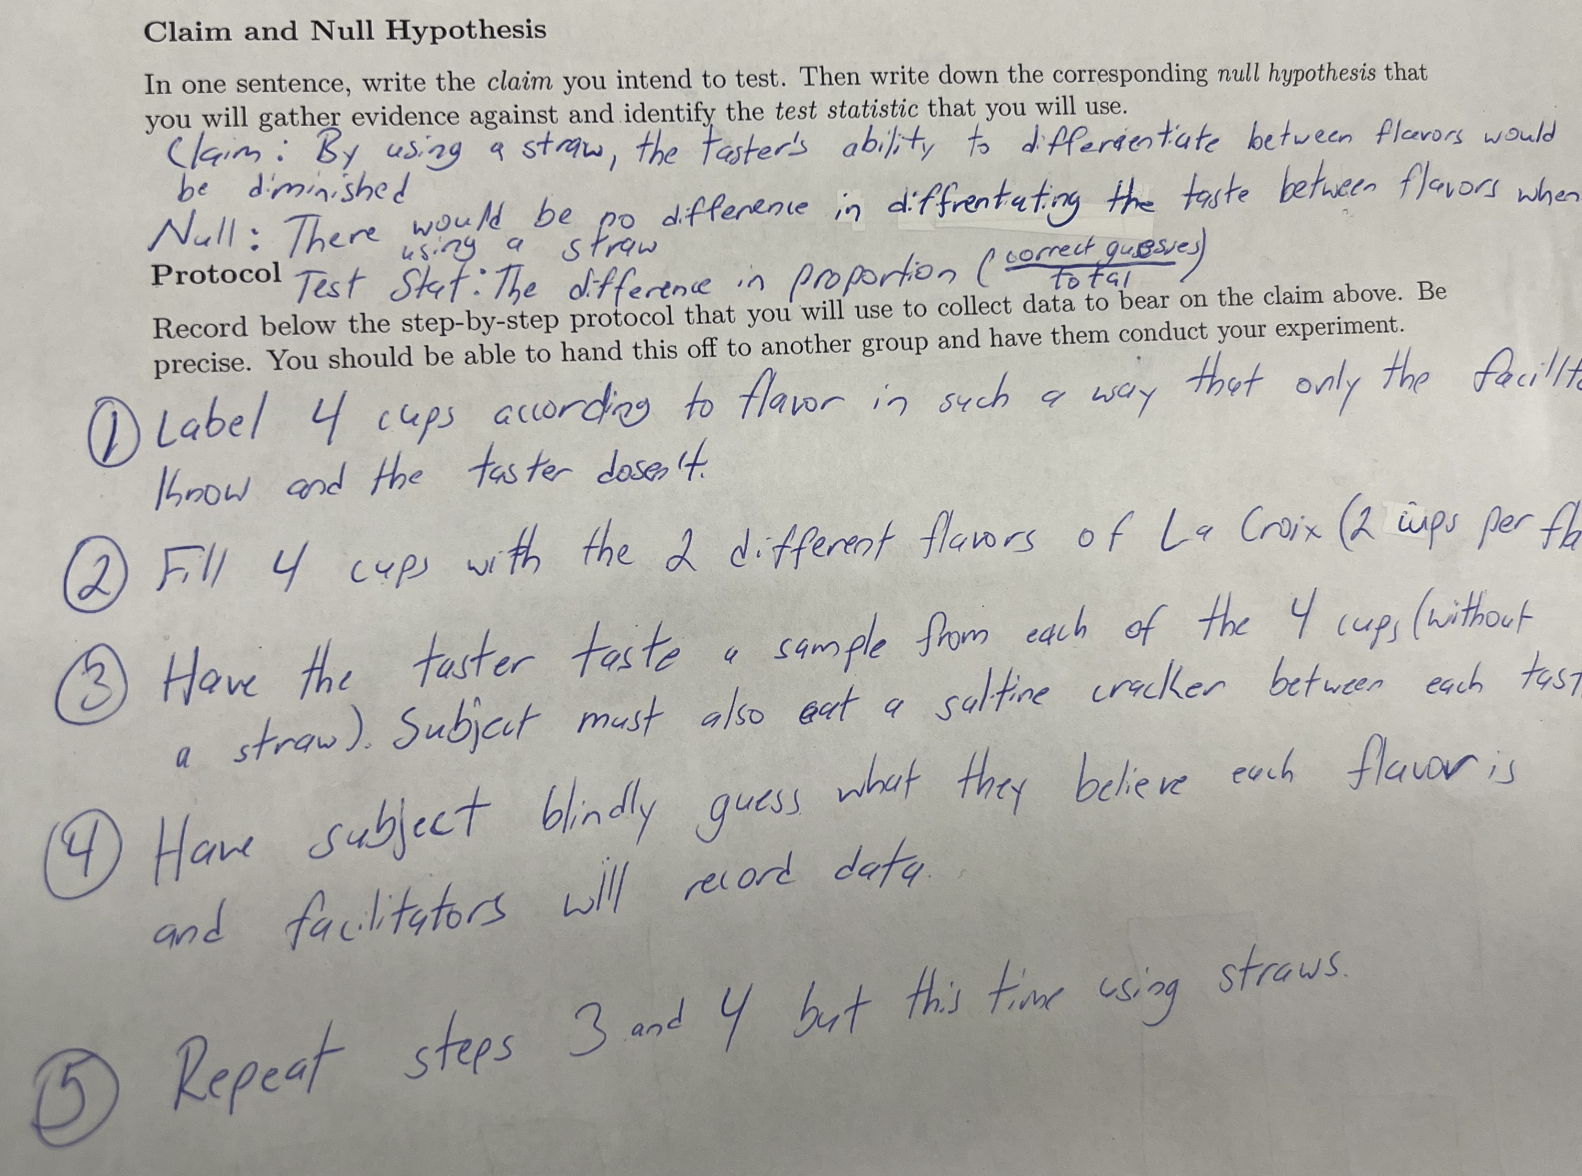 Claim and Null Hypothesis
In one sentence, write the claim you intend to test. Then write down the corresponding null hypothesis that
you will gather evidence against and identify the test statistic that you will use.
Claim: By using a straw, the taster's ability to differientiate between flavors would
be diminished
Null: There would be no difference in diffrentiating the taste between flavors when
using a straw
Protocol
Test Stat: The difference in proportion (correct guesses
total)
Record below the step-by-step protocol that you will use to collect data to bear on the claim above. Be
precise. You should be able to hand this off to another group and have them conduct your experiment.
① Label 4 cups according to flavor in such a way that only the
know and the taster dosen't.
② Fill 4 cups with the 2 different flavors of La Croix (2 cups per
③ Have the taster taste a sample from each of the 4 cups (without
a straw). Subject must also eat a saltine cracker between each
④ Have subject blindly guess what they believe each flavor is
and facilitators will record data.
⑤ Repeat steps 3 and 4 but this time using straws.